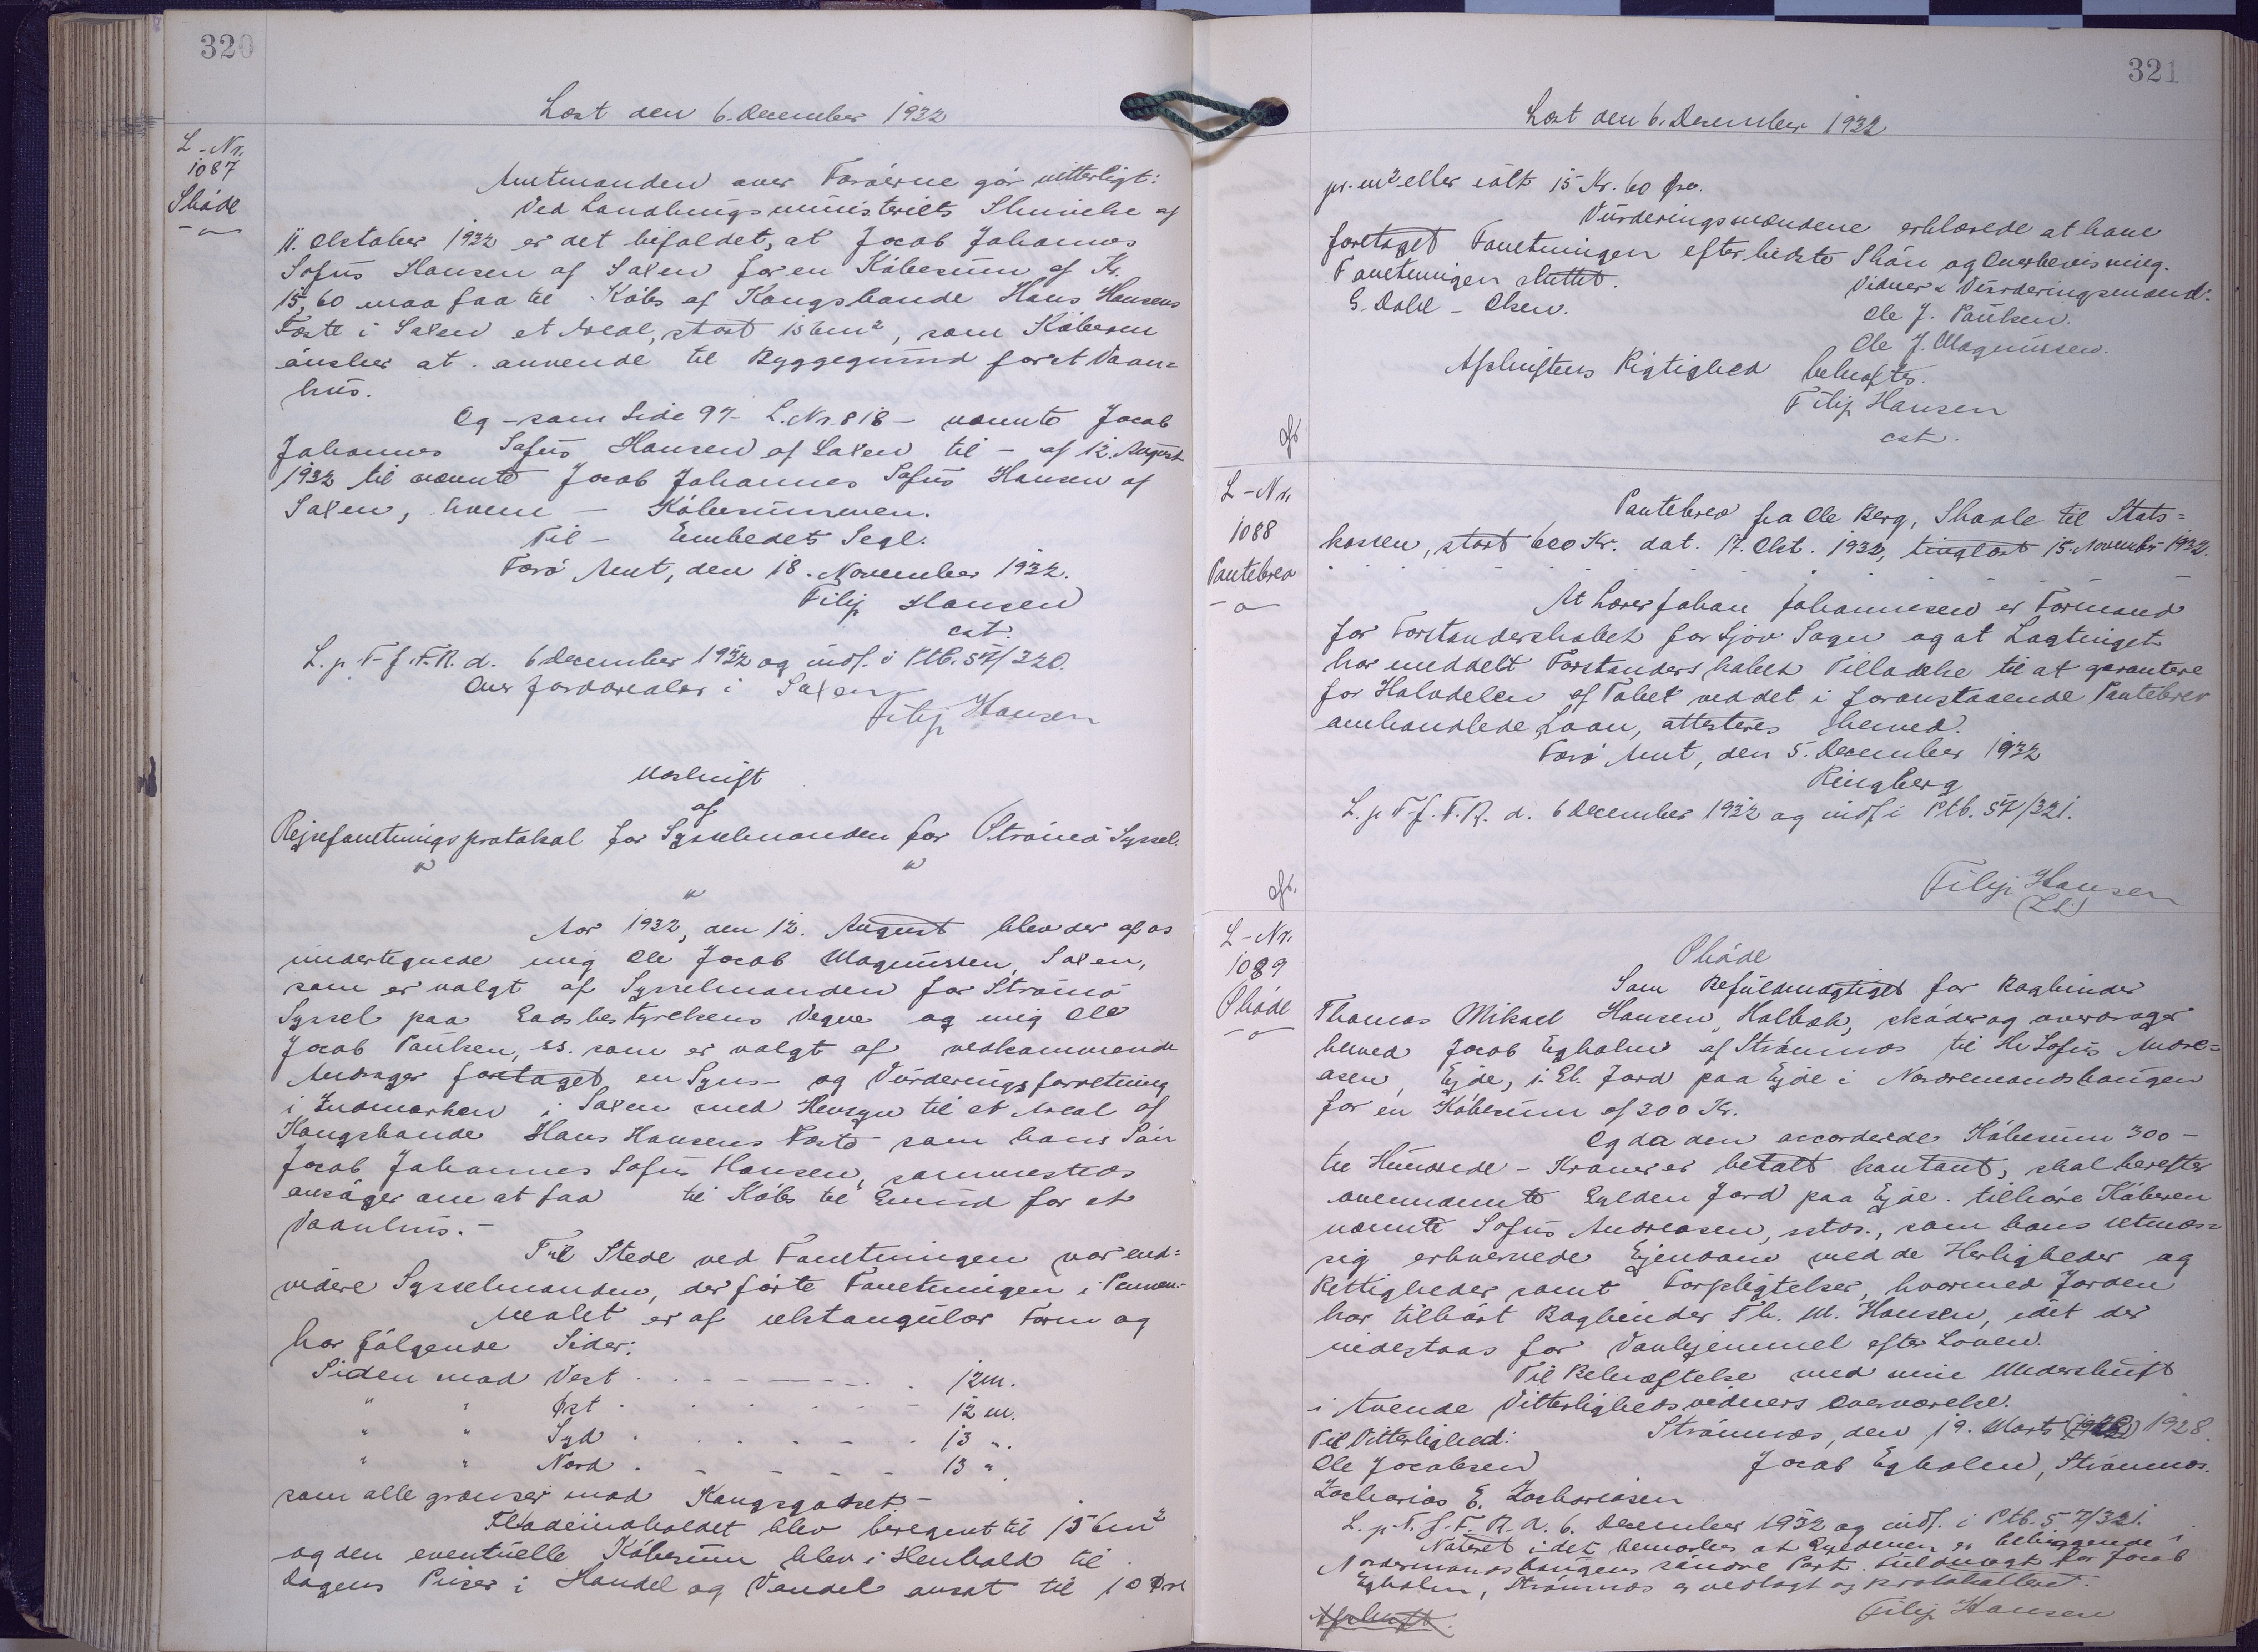 320
Læst den 6. December 1932
L-Nr.
1087
Skøde
Amtmanden over Færøerne gør vitterligt:
Ved Landbrugsministeriets Skrivelse af
11. Oktober 1932 er det bifaldet, at Jacob Johannes
Sofus Hansen af Saxen for en Købesum af Kr.
15,60 maa faa til Købs af Kongsbonde Hans Hansens
Fæste i Saxen et Areal, stort 156m², som Køberen
ønsker at anvende til Byggegrund for et Vaan=
hus.
Og - som Side 97 - L.Nr. 818 - nævnte Jacob
Johannes Sofus Hansen af Saxen til - af 12. August
1932 til nævnte Jacob Johannes Sofus Hansen af
Saxen, hvem - Købesummen.
Til - Embedets Segl.
Færø Amt, den 18. November 1932.
Filip Hansen
cst.
L. p. T. f. F. R. d. 6 December 1932 og indf. i Ptb. 57/320.
Over Jordarealer i Saxen
Filip Hansen
Udskrift
af
Rejseforretningsprotokol for Sysselmanden for Strømø Syssel.
" "
"
Aar 1932, den 12. August blev der af os
undertegnede mig Ole Jacob Magnussen, Saxen,
som er valgt af Sysselmanden for Strømø
Syssel paa Godsbestyrelsens Vegne og mig Ole
Jacob Paulsen, ss. som er valgt af vedkommende
Andrager foretaget en Syns- og Vurderingsforretning
i Indmarken i Saxen med Hensyn til et Areal af
Kongsbonde Hans Hansens Fæste som hans Søn
Jacob Johannes Sofus Hansen, sammesteds
ansøger om at faa til Købs til Grund for et
Vaanhus.-
Til Stede ved Forretningen var end=
videre Sysselmanden, der førte Forretningen i Pennen.-
Arealet er af rektangulær Form og
har følgende Sider:
Siden mod Vest . . . - - - - . . 12m.
" " Øst . . . . . - - 12 m.
" " Syd . . . . . - - . 13 ".
" " Nord . . - - - - - 13 ".
som alle grænser mod Kongsgodset.-
Fladeindholdet blev beregnet til 156m²
og den eventuelle Købesum blev i Henhold til
Dagens Priser i Handel og Vandel ansat til 10 Øre
321
Læst den 6. December 1932
pr. m² eller ialt 15 Kr. 60 Øre.
Vurderingsmændene erklærede at have
foretaget Forretningen efter bedste Skøn og Overbevisning.
Forretningen sluttet.
Vidner & Vurderingsmænd:
G. Dahl - Olsen.
Ole J. Paulsen.
Ole J. Magnussen.
Afskriftens Rigtighed bekræftes.
Filip Hansen
cst.
L-Nr.
1088
Pantebrev
Pantebrev fra Ole Berg, Skaale til Stats=
kassen, stort 600 Kr. dat. 17. Okt. 1932, tinglæst 15. November 1932.
At Lærer Johan Johannesen er Formand
for Forstanderskabet for Sjov Sogn og at Lagtinget
har meddelt Forstanderskabet Tilladelse til at garantere
for Halvdelen af Tabet ved det i foranstaaende Pantebrev
omhandlede Laan, attesteres herved.
Færø Amt, den 5. December 1932
Ringberg
L. p. T. f. F. R. d. 6 December 1932 og indf. i Ptb. 57/321.
Filip Hansen
(LS)
L-Nr.
1089
Skøde
Skøde
Som Befuldmægtiget for Bogbinder
Thomas Mikael Hansen, Holbæk, skøder og overdrager
herved Jacob Egholm af Strømnæs til Hr. Sofus Andre=
asen, Ejde, 1 Gl. Jord paa Ejde i Nordremandshaugen
for en Købesum af 300 Kr.
Og da den accorderede Købesum 300 -
tre Hundrede - Kroner er betalt kontant, skal herefter
ovennævnte Gylden Jord paa Ejde tilhøre Køberen
nævnte Sofus Andreasen, sstds., som hans retmæs=
sig erhvervede Ejendom med de Herligheder og
Rettigheder samt Forpligtelser, hvormed Jorden
har tilhørt Bogbinder Th. M. Hansen, idet der
indestaas for Vanhjemmel efter Loven.
Til Bekræftelse med min Underskrift
i tvende Vitterlighedsvidners Overværelse.
Strømnæs, den 19. Marts 1928.
Til Vitterlighed:
Ole Jacobsen
Jacob Egholm, Strømnæs.
Zacharias E. Zachariasen
L. p. T. f. F. R. d. 6. December 1932 og indf. i Ptb. 57/321.
Noteret idet bemærkes at Gyldenen er beliggende i
Nordremandshaugens søndre Part. Fuldmagt for Jacob
Egholm, Strømnæs er vedlagt og protokolleret.
Filip Hansen
Afskrift.